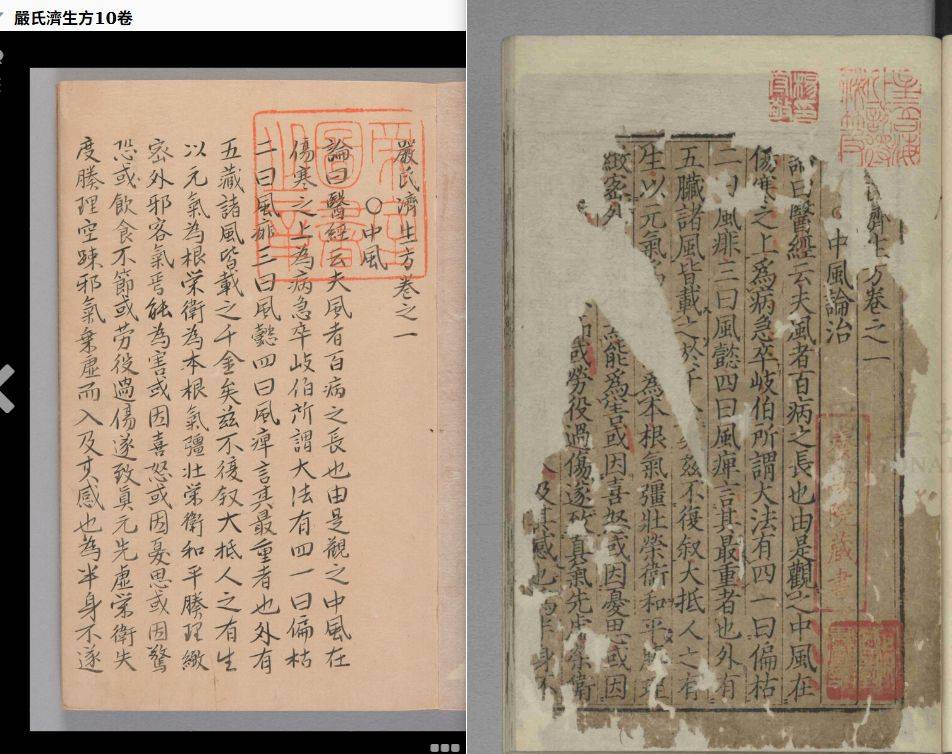 嚴氏濟生方10卷
嚴氏濟生方卷之一
○中風
論曰醫經云夫風者百病之長也由是觀之中風在
傷寒之上為病急卒岐伯所謂大法有四一曰偏枯
二曰風痱三曰風懿四曰風痺言其最重者也外有
五藏諸風皆載之千金矣茲不復叙大抵人之有生
以元氣為根栄衛為本根氣彊壯栄衛和平腠理緻
宻外邪客氣焉能為害或因喜怒或因憂思或因驚
恐或飲食不節或劳役過傷遂致眞元先虛栄衛失
度腠理空踈邪氣乗虛而入及其感也為半身不遂
濟生方卷之一
中風論治
論曰醫經云夫風者百病之長也由是觀之中風在
傷寒之上爲病急卒岐伯所謂大法有四一曰偏枯
二曰風痱三曰風懿四曰風痺言其最重者也外有
五臟諸風皆載之於千 茲不復叙大抵人之有
生以元氣 爲本根氣彊壯榮衛和平腠理
緻密外 能爲害或因喜怒或因憂思或因
或勞役過傷遂致真氣先虛榮衛
及其感也 身不